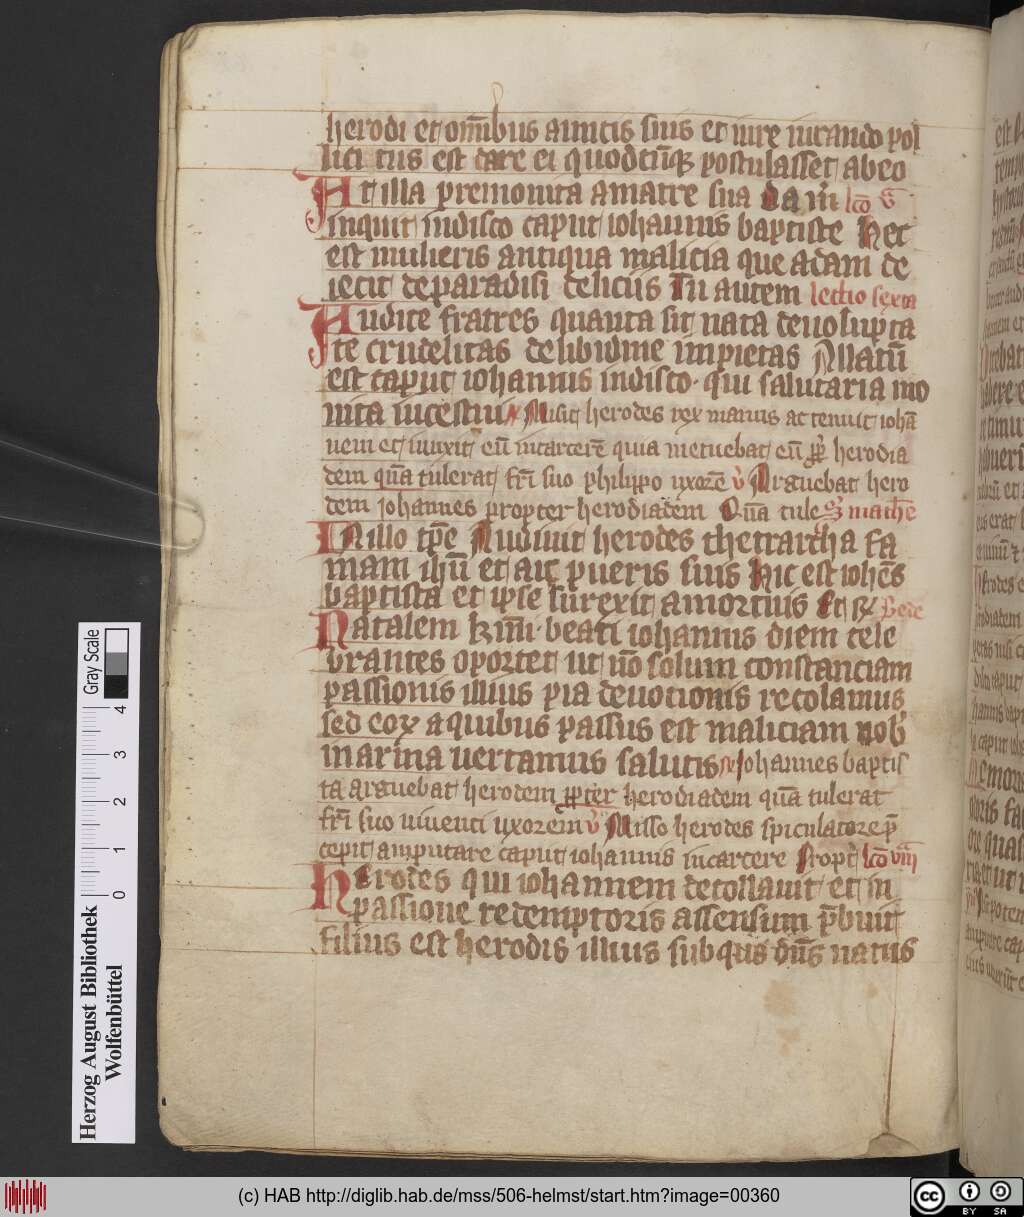 herodi et om̄ibus amicis suis et iure iurando pol
lici tus est dare ei quodcūqꝫ postulasset abeo
At illa premonita amatre sua da m̄
inquit indisco caput iohannis baptiste Hec
est mulieris antiqua malicia que adam de
iecit deparadisi deliciis Tu autem lectio sexta
Audite fratres quanta sit nata deuolupta
te crudelitas delibidine impietas Allatū
est caput iohannis indisco · qui salutaria mo
nita Misit herodes rex manus ac tenuit iohā
nem et uinxit eū incarcerē quia metuebat eū ꝓpt herodia
dem quā tulerat fr̄i suo philippo uxorē v̓ Arguebat hero
dem iohannes propter herodiadem Quā tule mathē
In illo tp̄e Audiuit herodes thetrarcha fa
mam ihū et ait pueris suis Hic est iohēs
baptista et ipse surexit amortuis Et ꝶ Bede
Natalem kr̄mi · beati iohannis diem cele
brantes oportet ut nō solum constanciam
passionis illius pia deuotionis recolamus
sed eoꝝ aquibus passus est maliciam nob̓
marina uertamus salutis Iohannes baptis
ta arguebat herodem ꝓpter herodiadem quā tulerat
fr̄i suo uiuenti uxorem v̓ Misso herodes spiculatore p̄
cepit amputare caput iohannis incarcere Propt̓ lcō viii
Herodes qui iohannem decollauit et in
passione redemptoris assensum p̄buit
filius est herodis illius subquo dn̄s natus
Gray Scale
0 1 2 3 4
Herzog August Bibliothek
Wolfenbüttel
(c) HAB http://diglib.hab.de/mss/506-helmst/start.htm?image=00360
CC BY SA